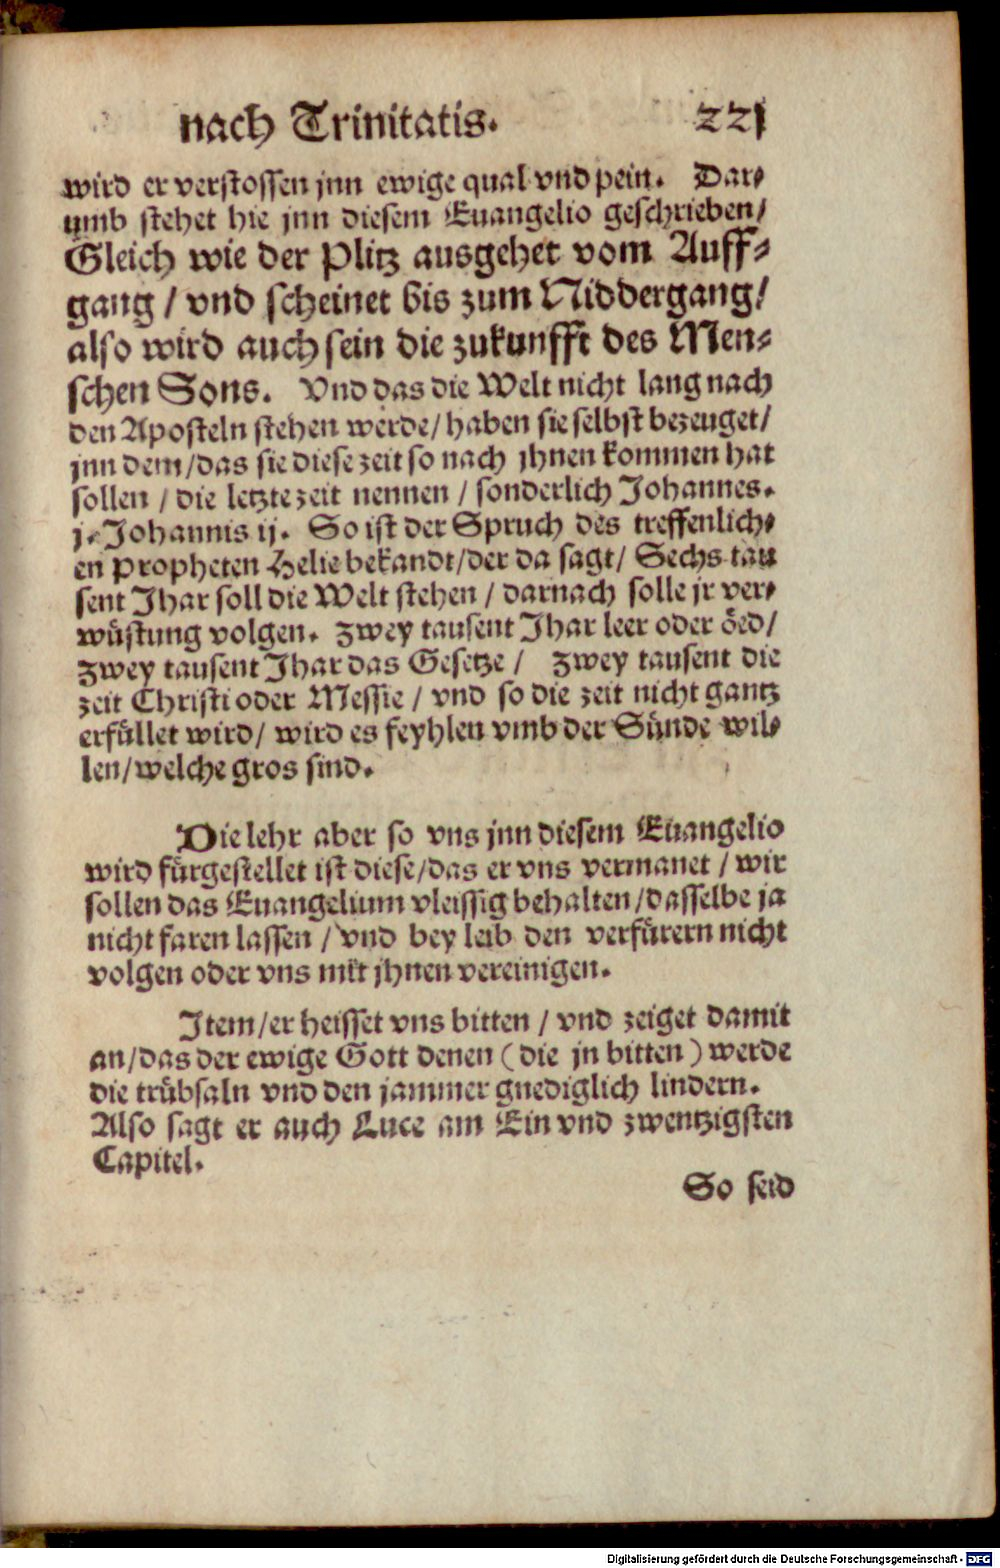 nach Trinitatis. 221
wird er verstossen jnn ewige qual vnd pein. Dar-
umb stehet hie jnn diesem Euangelio geschrieben/
Gleich wie der Plitz ausgehet vom Auff-
gang / vnd scheinet bis zum Niddergang/
also wird auch sein die zukunfft des Men-
schen Sons. Vnd das die Welt nicht lang nach
den Aposteln stehen werde/ haben sie selbst bezeuget/
jnn dem/das sie diese zeit so nach jhnen kommen hat
sollen / die letzte zeit nennen / sonderlich Johannes.
j. Johannis ij. So ist der Spruch des treffenlich-
en Propheten Helie bekandt/der da sagt/ Sechs tau
sent Jhar soll die Welt stehen / darnach solle jr ver-
wüstung volgen. Zwey tausent Jhar leer oder öed/
Zwey tausent Jhar das Gesetze / Zwey tausent die
zeit Christi oder Messie / vnd so die zeit nicht gantz
erfüllet wird/ wird es feyhlen vmb der Sünde wil-
len/welche gros sind.
Die lehr aber so vns jnn diesem Euangelio
wird fürgestellet ist diese/das er vns vermanet / wir
sollen das Euangelium vleissig behalten/dasselbe ja
nicht faren lassen / vnd bey leib den verfürern nicht
volgen oder vns mit jhnen vereinigen.
Jtem/er heisset vns bitten / vnd zeiget damit
an/das der ewige Gott denen (die jn bitten) werde
die trübsaln vnd den jammer gnediglich lindern.
Also sagt er auch Luce am Ein vnd zwentzigsten
Capitel.
So seid
Digitalisierung gefördert durch die Deutsche Forschungsgemeinschaft - DFG